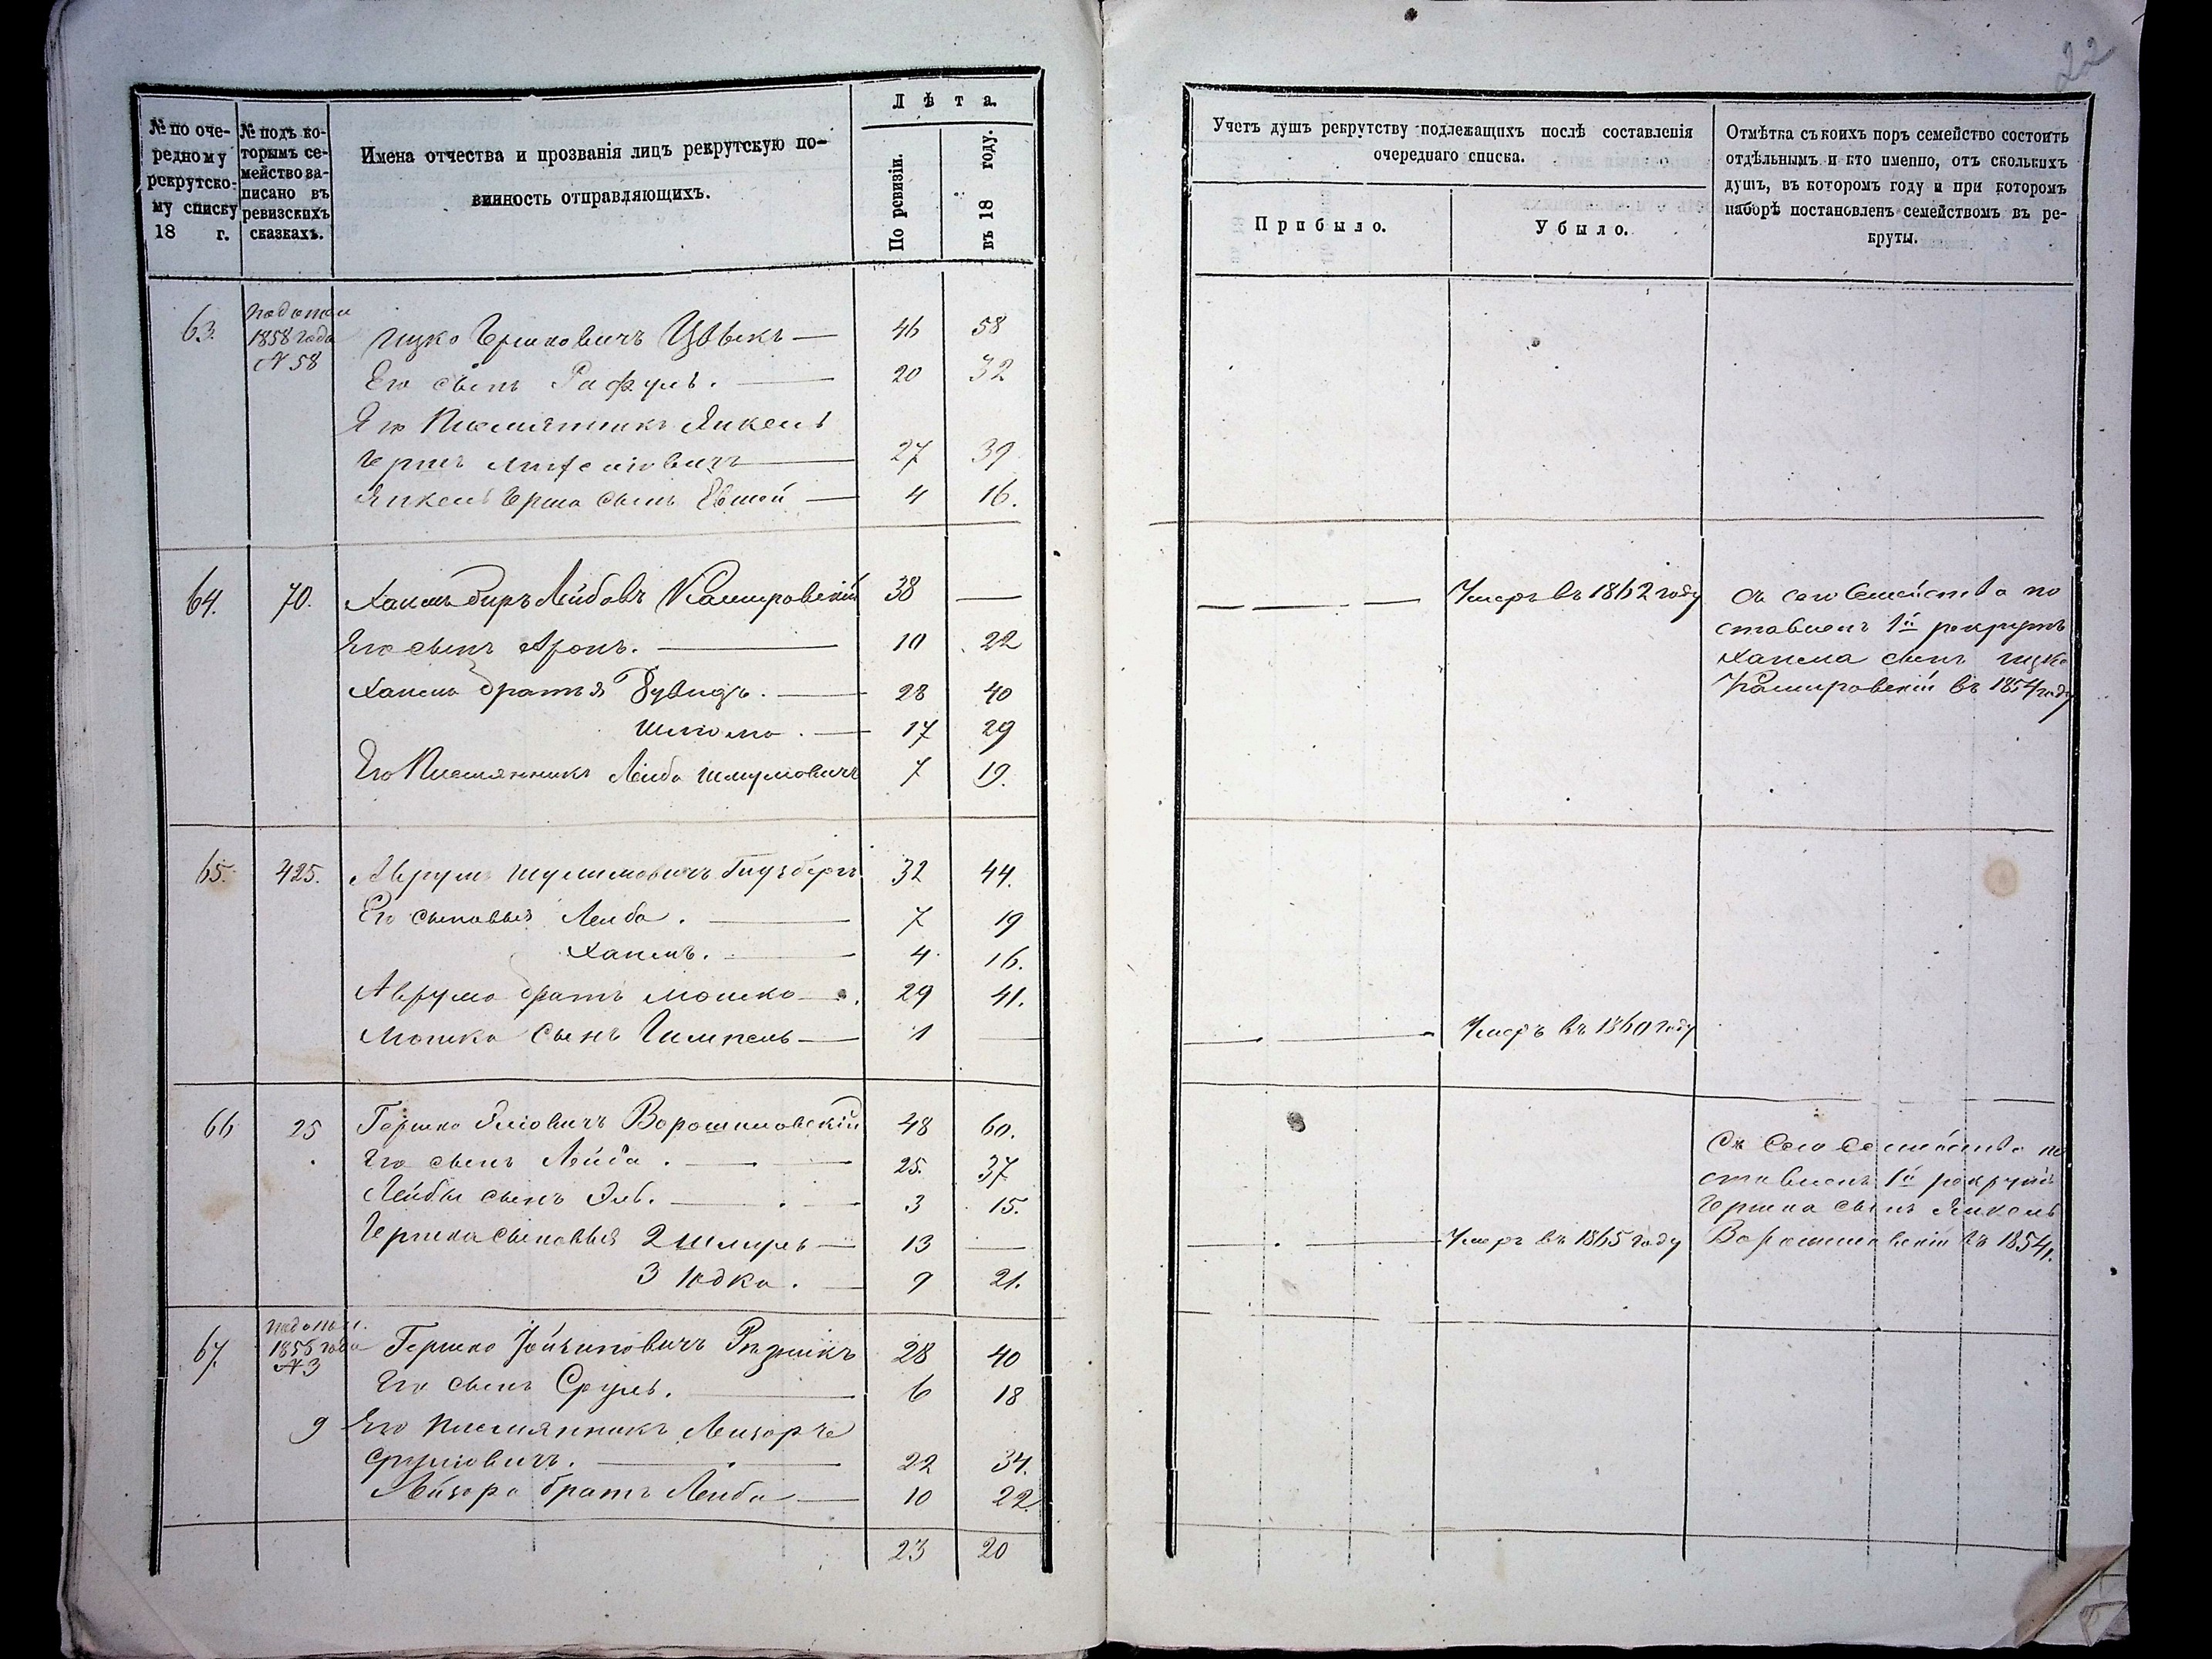 22
№ по оче-
редному
рекрутско-
му списку
18 г.
№ подъ ко-
торымъ се-
мейство за-
писано въ
ревизскихъ
сказкахъ.
Имена отчества и прозванія лицъ рекрутскую по-
винность отправляющихъ.
Лѣта.
По ревизіи.
въ 18 году.
Учетъ душъ рекрутству подлежащихъ послѣ составленія
очереднаго списка.
Прибыло.
Убыло.
Отмѣтка съ коихъ поръ семейство состоитъ
отдѣльнымъ и кто именно, отъ сколькихъ
душъ, въ которомъ году и при которомъ
наборѣ постановленъ семействомъ въ ре-
круты.
63. 1858 года № 58 Ицко Гершковичъ Цвыкъ — 46 58
Его сынъ Рафуль. — 20 32
Его Племянникъ Янкель
Гершъ — 27 39
Янкель Герша сынъ Овшей — 4 16.
64. 70. Хаимъ Беръ Лейбовъ Кашировскій 38 — Умеръ въ 1862 году
Его сынъ Аронъ. — 10 22
Хаима братья Дувидъ. — 28 40
Шлиома. — 17 29
Его Племянникъ Лейба Шмулиовичъ 7 19.
Съ сего Семейства по
ставленъ 1й рекрутъ
Хаима сынъ Ицко
Кашировскій въ 1854 году
65. 425. Аврумъ Шулимовичъ Гинзбергъ 32 44.
Его сыновья Лейба. — 7 19
Хаимъ. — 4 16.
Аврума братъ Мошко — 29 41.
Мошка Сынъ Гимпель — 1 — Умеръ въ 1860 году
66 25 Гершко Эліовичъ Ворошиловскій 48 60.
Его сынъ Лейба. — 25. 37
Лейбы сынъ Эль. — 3 15.
Гершка сыновья 2 Шмуль — 13 — Умеръ въ 1865 году
3 Юдка. — 9 21.
Съ Сего Семейства по
ставленъ 1й рекрутъ
Гершка сынъ Янкель
Ворошиловскій въ 1854 г.
67. 1858 года № 3 Гершко Рѣзникъ 28 40
Его сынъ Сруль. — 6 18
9 Его Племянникъ Лейзоръ
Сруліовичъ. — 22 34.
Лейзора братъ Лейба — 10 22.
23 20